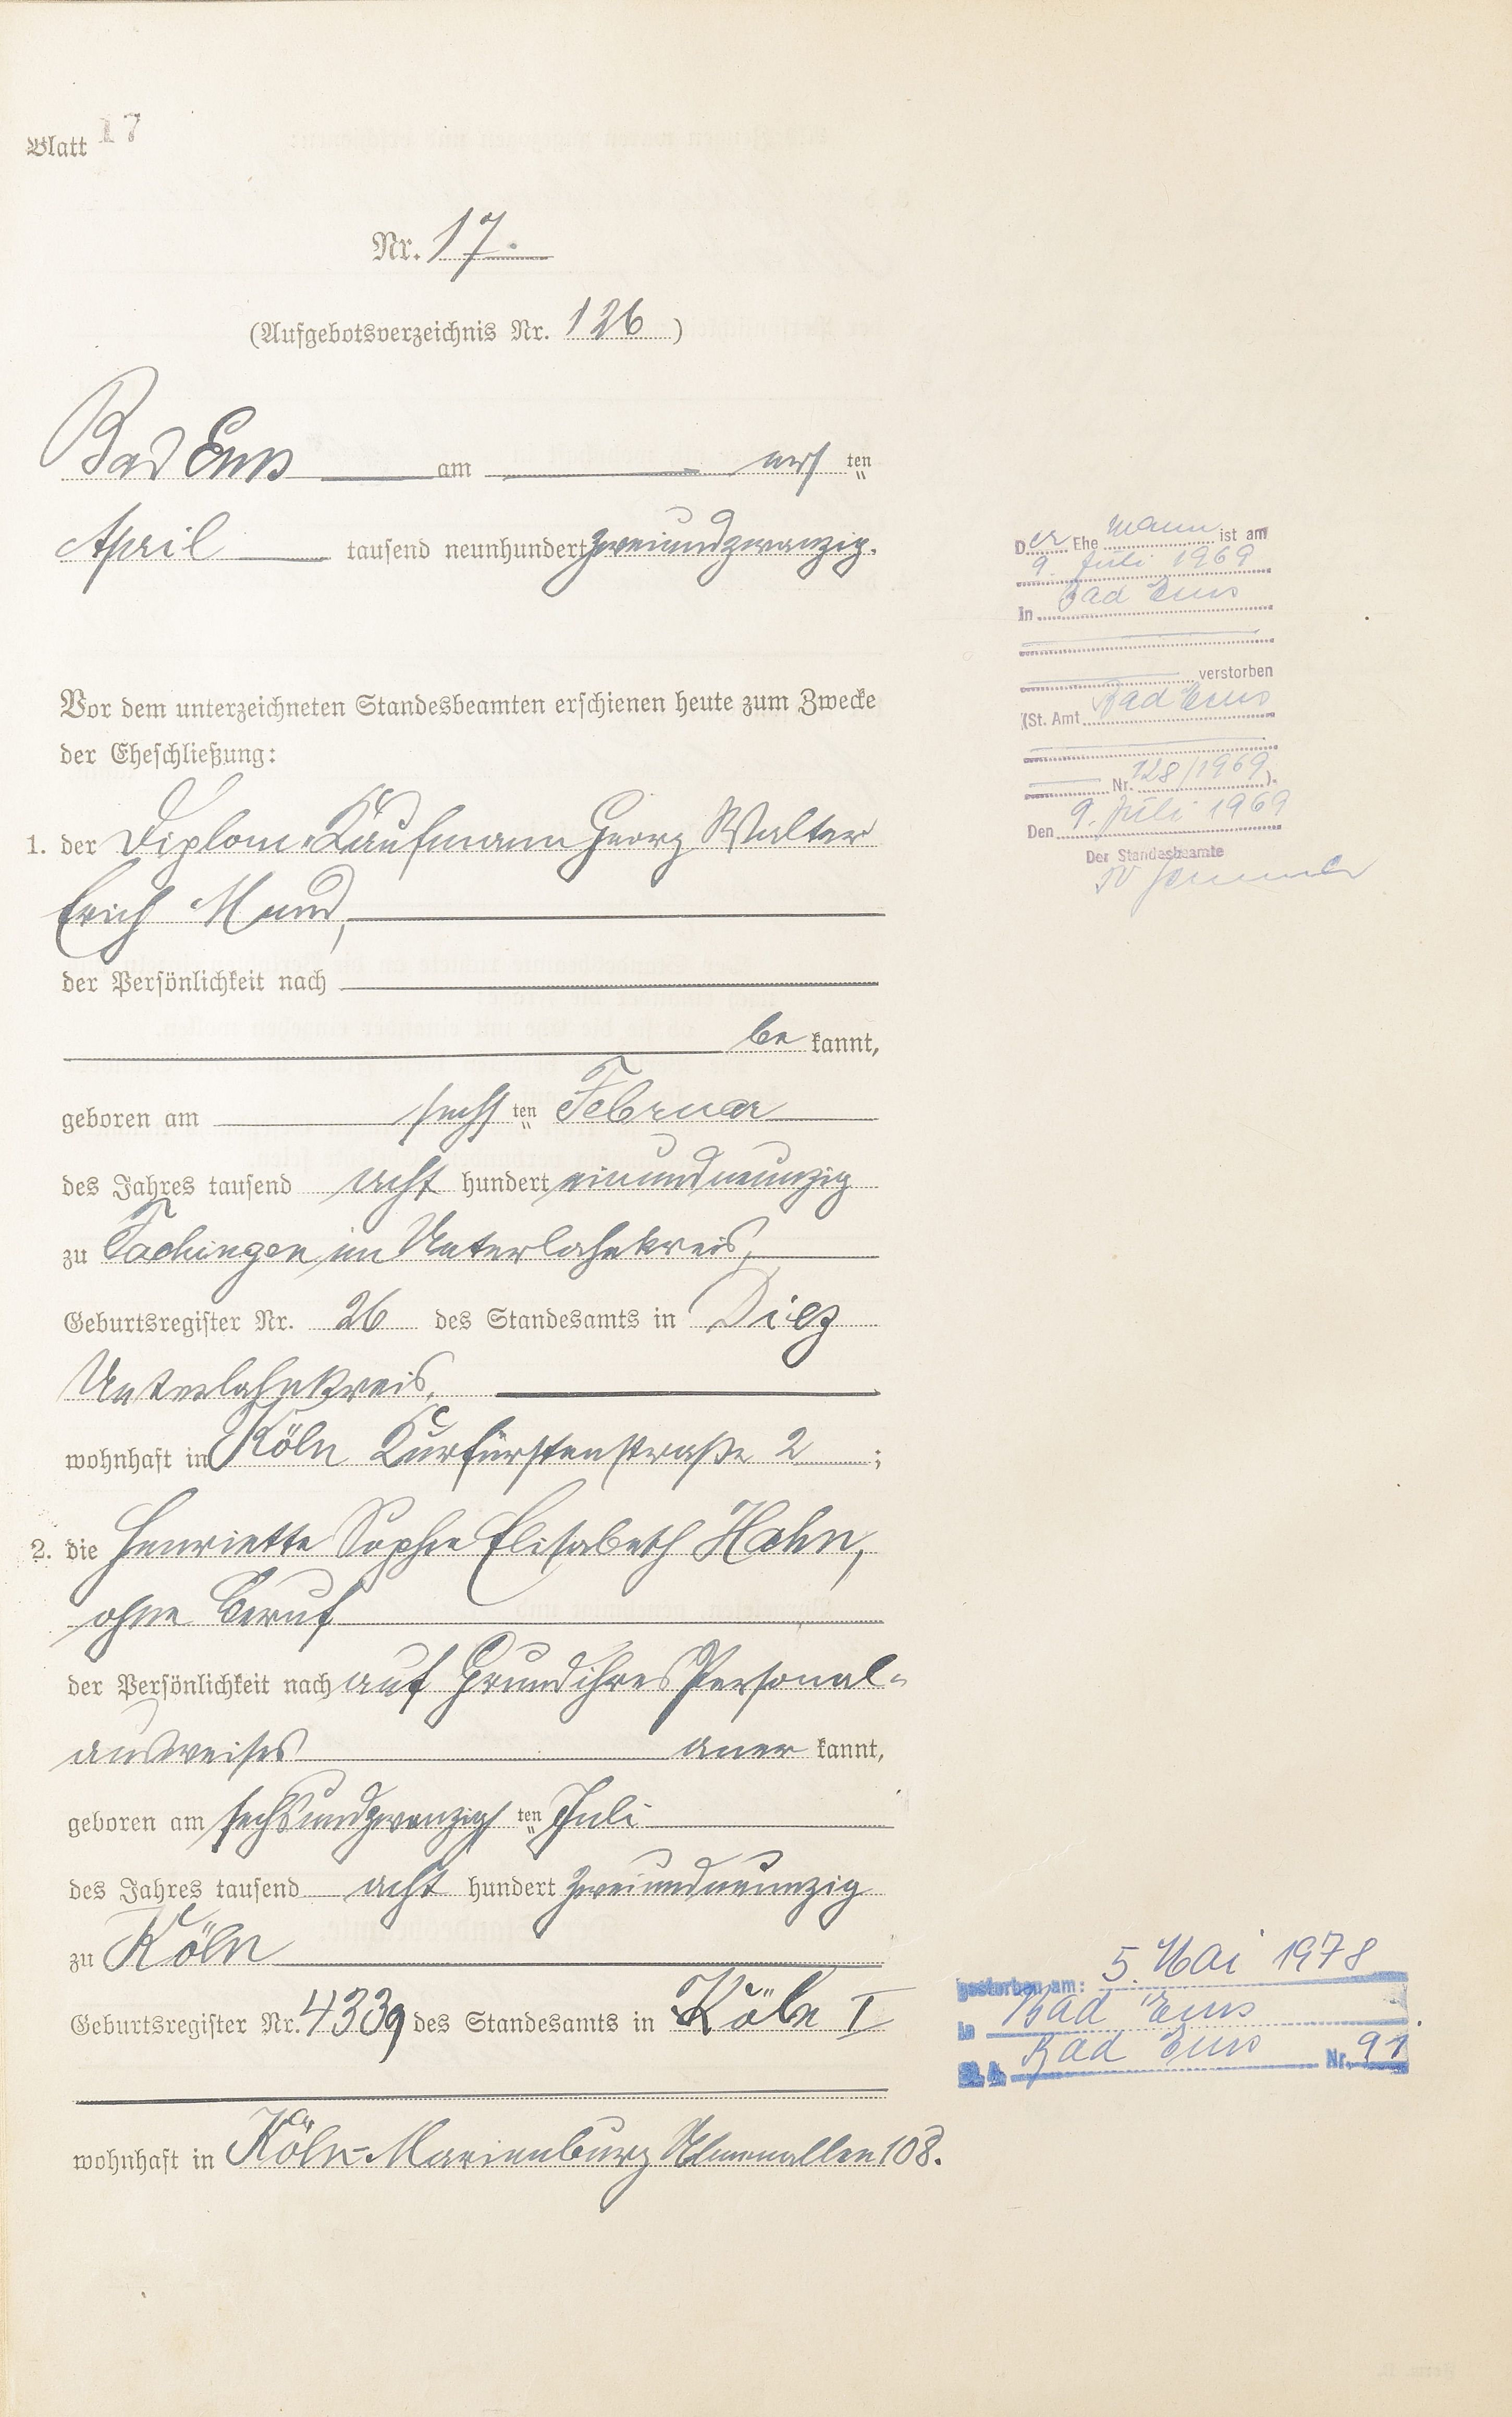 Blatt 17
Nr. 17.
(Aufgebotsverzeichnis Nr. 126)
Bad Ems am ersten
April tausend neunhundert zweiundzwanzig.
Vor dem unterzeichneten Standesbeamten erschienen heute zum Zwecke
der Eheschließung:
1. der Diplom-Kaufmann Georg Walter
Erich Mund,
der Persönlichkeit nach
bekannt,
geboren am sechsten Februar
des Jahres tausend acht hundert einundneunzig
zu Fachingen im Unterlahnkreis,
Geburtsregister Nr. 26 des Standesamts in Diez
Unterlahnkreis,
wohnhaft in Köln Kurfürstenstraße 2;
2. die Henriette Sophie Elisabeth Hahn,
ohne Beruf
der Persönlichkeit nach auf Grund ihres Personal-
ausweises anerkannt,
geboren am sechsundzwanzigsten Juli
des Jahres tausend acht hundert zweiundneunzig
zu Köln
Geburtsregister Nr. 4339 des Standesamts in Köln I
wohnhaft in Köln-Marienburg Ulmenallee 108.
Der Ehemann ist am
9. Juli 1969
in Bad Ems
verstorben
(St. Amt Bad Ems
Nr. 128/1969).
Den 9. Juli 1969
Der Standesbeamte
IV
gestorben am: 5. Mai 1978
in Bad Ems
St. A. Bad Ems Nr. 91